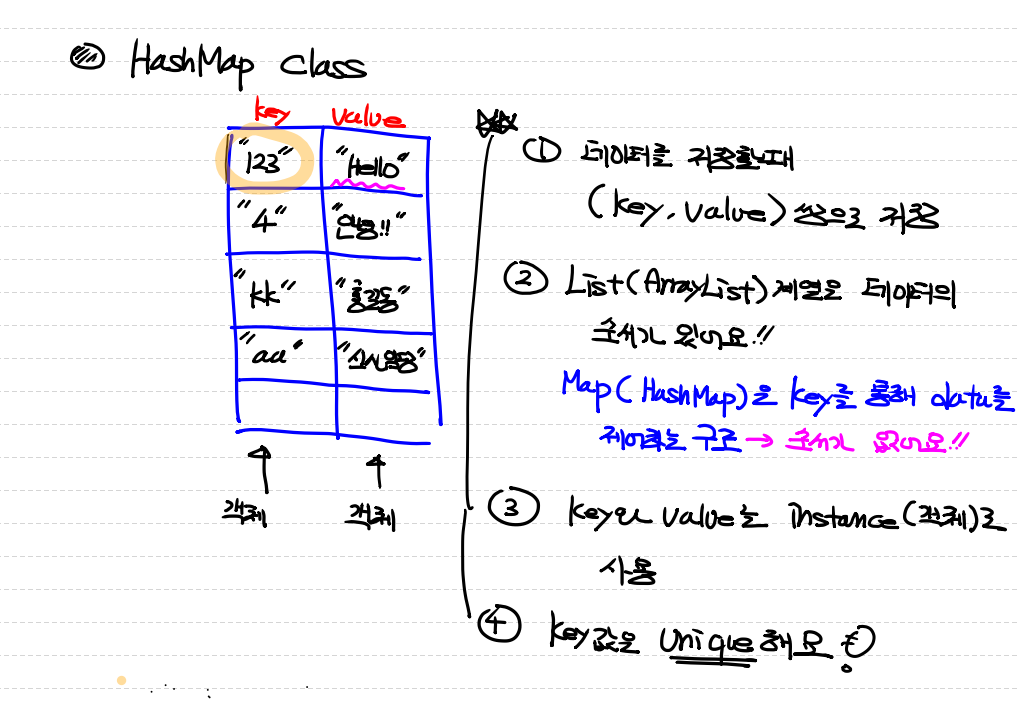 HashMap Class
key value
"123" "Hello"
"4" "안녕!!"
"kk" "홍길동"
"aa" "신사임당"
객체 객체
① 데이터를 저장할때
(key, value) 쌍으로 저장
② List(ArrayList) 계열은 데이터의
순서가 있어요!!
Map(HashMap)은 key를 통해 data를
제어하는 구조 → 순서가 없어요!!
③ key와 value는 instance(객체)로
사용
④ key값은 unique해요.